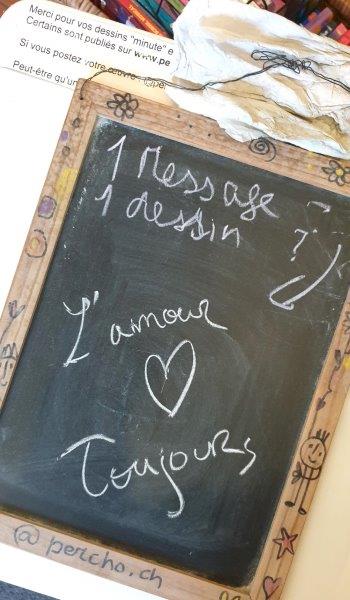 Merci pour vos dessins "minute" e
Certains sont publiés sur www.pe
Si vous postez votre œuvre
Peut-être qu'un
1 Message
1 dessin ?
L'amour
Toujours
@ percho.ch